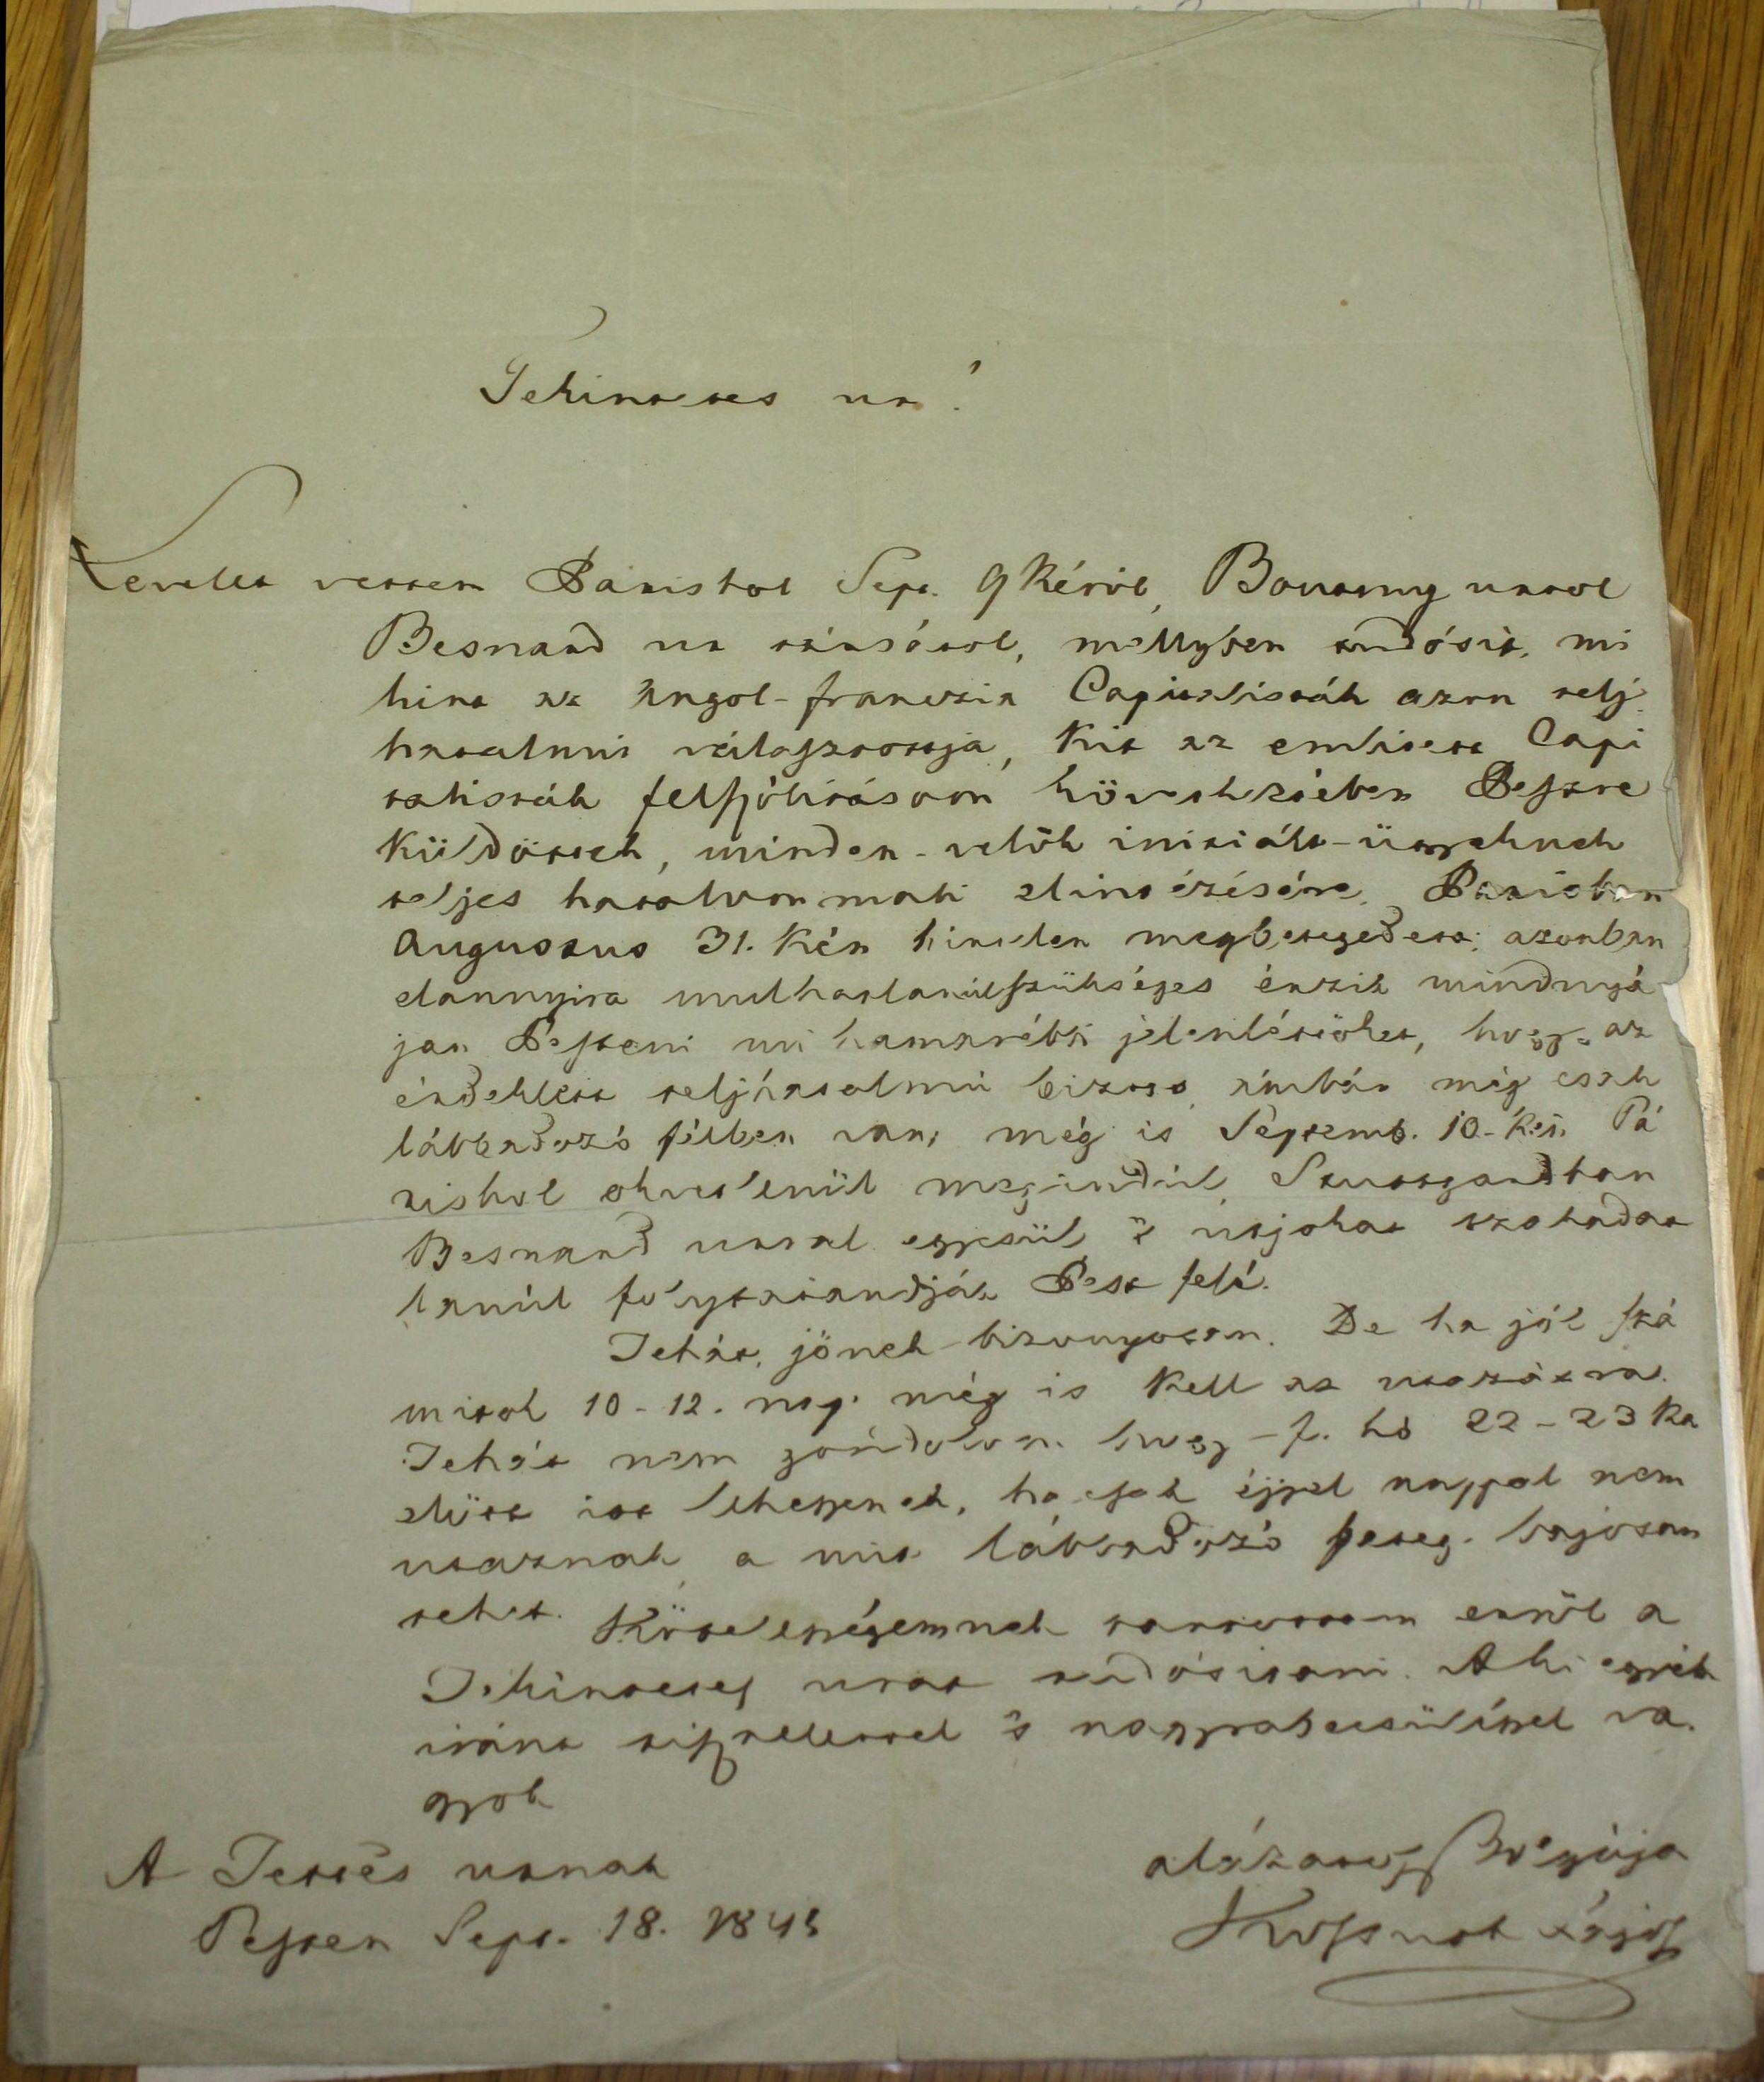 Tekintetes ur!
Levelet vettem Párisból Sept. 9kéről, Bourmy urtól
Besnard ur társától, mellyben tudósít, mi
kint az angol-franczia Capitalisták azon telj
hatalmú választottja, kit az emlitett Capi
talisták felszólitásom következtében Pestre
küldöttek, minden velök initiált ügyeknek
teljes hatalommali elintézésére, Parisban
Augustus 31.kén hirtelen megbetegedett; azonban
elannyira mulhatlanúl szükséges érzik mindnyá
jan Pesteni mihamarébbi jelenlétöket, hogy az
érdeklett teljhatalmú biztos, ámbár még csak
lábbadozó félben van, még is Septemb. 10-kén Pá
risból okvetlenül megindúl, Stuttgardtban
Besnard urral egyesül 's útjokat szakadat
lanúl folytatandják Pest felé.
Tehát jönek bizonyosan. De ha jól szá
mitok 10-12. nap még is kell az utazásra.
Tehát nem gondolom hogy f. hó 22-23ka
előtt itt lehessenek, ha csak éjjel nappal nem
utaznak, a mit lábbadozó beteg bajosan
tehet. Kötelességemnek tartottam erről a
Tekintetes urat tudósitani. A ki egyéb
iránt tisztelettel 's nagyrabecsüléssel va
gyok
A Tettes urnak
alázatos szolgája
Pesten Sept. 18. 1845
Kossuth Lajos